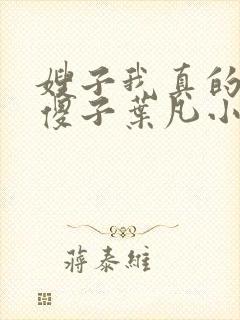 嫂子我真的
傻子葉凡小
蔣泰維